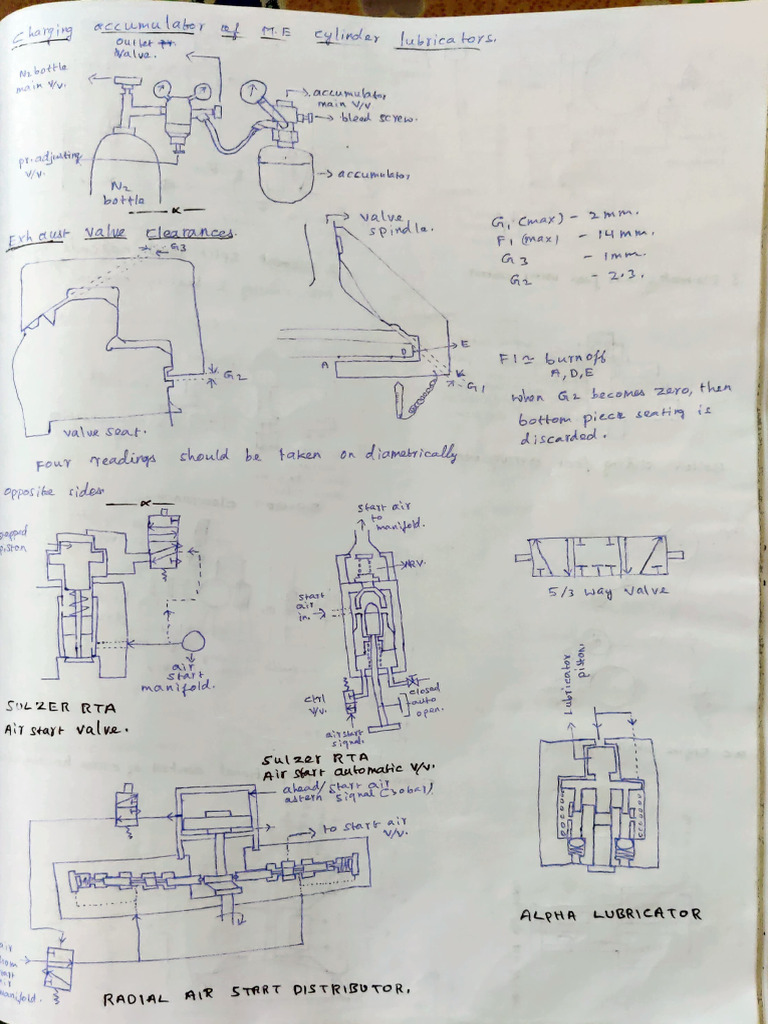 Charging accumulator of M.E cylinder lubricators.
outlet
valve.
N2 bottle
main v/v.
accumulator
main v/v
bleed screw.
pr. adjusting
v/v.
accumulator
N2
bottle
Exhaust valve clearances.
G3
valve
spindle.
G1 (max) - 2mm.
F1 (max) - 14mm.
G3 - 1mm.
G2 - 2.3.
G2
A
D
E
K
G1
F1 ≃ burnoff
A, D, E
when G2 becomes zero, then
bottom piece seating is
discarded.
valve seat.
Four readings should be taken on diametrically
opposite sides
piston
air
start
manifold.
SULZER RTA
Air start valve.
start air
to
manifold.
NRV
start
air
in.
ctrl
v/v.
closed
auto
open.
airstart
signal.
Sulzer RTA
Air start automatic v/v.
5/3 way valve
Lubricator
piston.
ALPHA LUBRICATOR
ahead/start air
astern signal (30bar)
to start air
v/v.
air
from
start
air
manifold.
RADIAL AIR START DISTRIBUTOR.